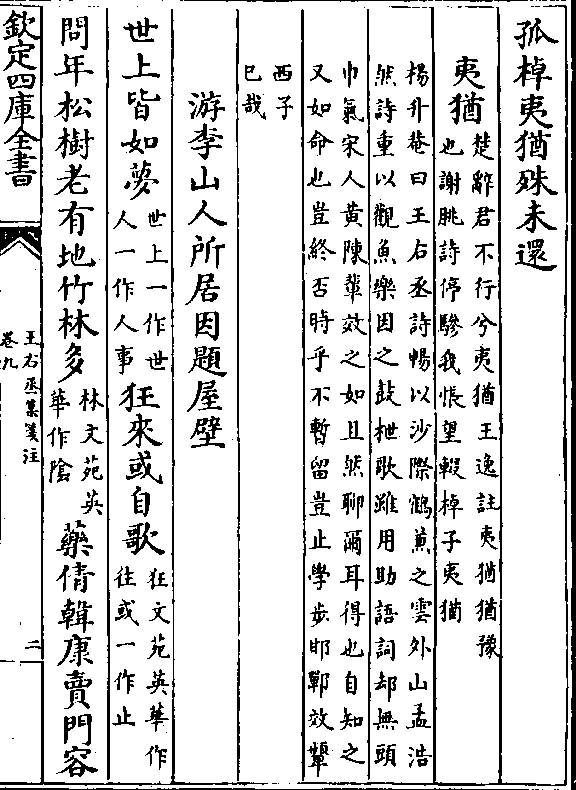 孤棹夷猶殊未還
夷猶楚辭君不行兮夷猶王逸註夷猶猶豫
也謝朓詩停驂我悵望輟棹子夷猶
楊升菴曰王右丞詩暢以沙際鶴兼之雲外山孟浩
然詩重以觀魚樂因之鼓枻歌雖用助語詞却無頭
巾氣宋人黄陳輩效之如且然聊爾耳得也自知之
又如命也豈終否時乎不暫留豈止學步邯鄲效顰
西子
已哉
游李山人所居因題屋壁
世上皆如夢世上一作世
人一作人事狂來或自歌狂文苑英華作
往或一作止
問年松樹老有地竹林多林文苑英
華作陰藥倩韓康賣門容
欽定四庫全書
王右丞集箋注
卷九
二